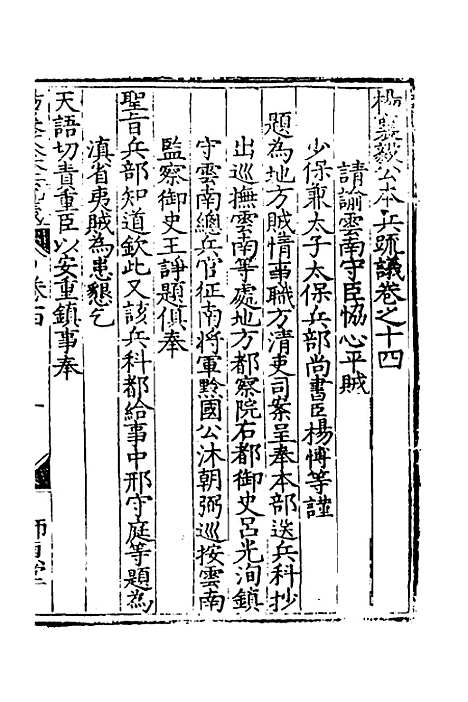 楊襄毅公本兵疏議卷之十四
請諭雲南守臣恊心平賊
少保兼太子太保兵部尚書臣楊博等謹
題為地方賊情事職方清吏司案呈奉本部送兵科抄
出巡撫雲南等處地方都察院右都御史呂光洵鎮
守雲南總兵官征南將軍黔國公沐朝弼巡按雲南
監察御史王諍題俱奉
聖旨兵部知道欽此又該兵科都給事中邢守庭等題為
滇省夷賊為患懇乞
天語切責重臣以安重鎮事奉
卷十四
師貞堂